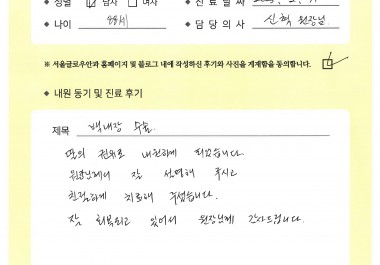 ◆ 성별 ☑ 남자 □ 여자 ◆ 진 료 날 짜
◆ 나이 세 ◆ 담 당 의 사 신혁 원장님.
※ 서울글로우안과 홈페이지 및 블로그 내에 작성하신 후기와 사진을 게재함을 동의합니다. ☑
◆ 내원 동기 및 진료 후기
제목 백내장 수술.
딸의 권유로 내원하게 되었습니다.
원장님께서 잘 설명해 주시고
친절하게 치료해 주셨습니다.
잘 회복되고 있어서 원장님께 감사드립니다.